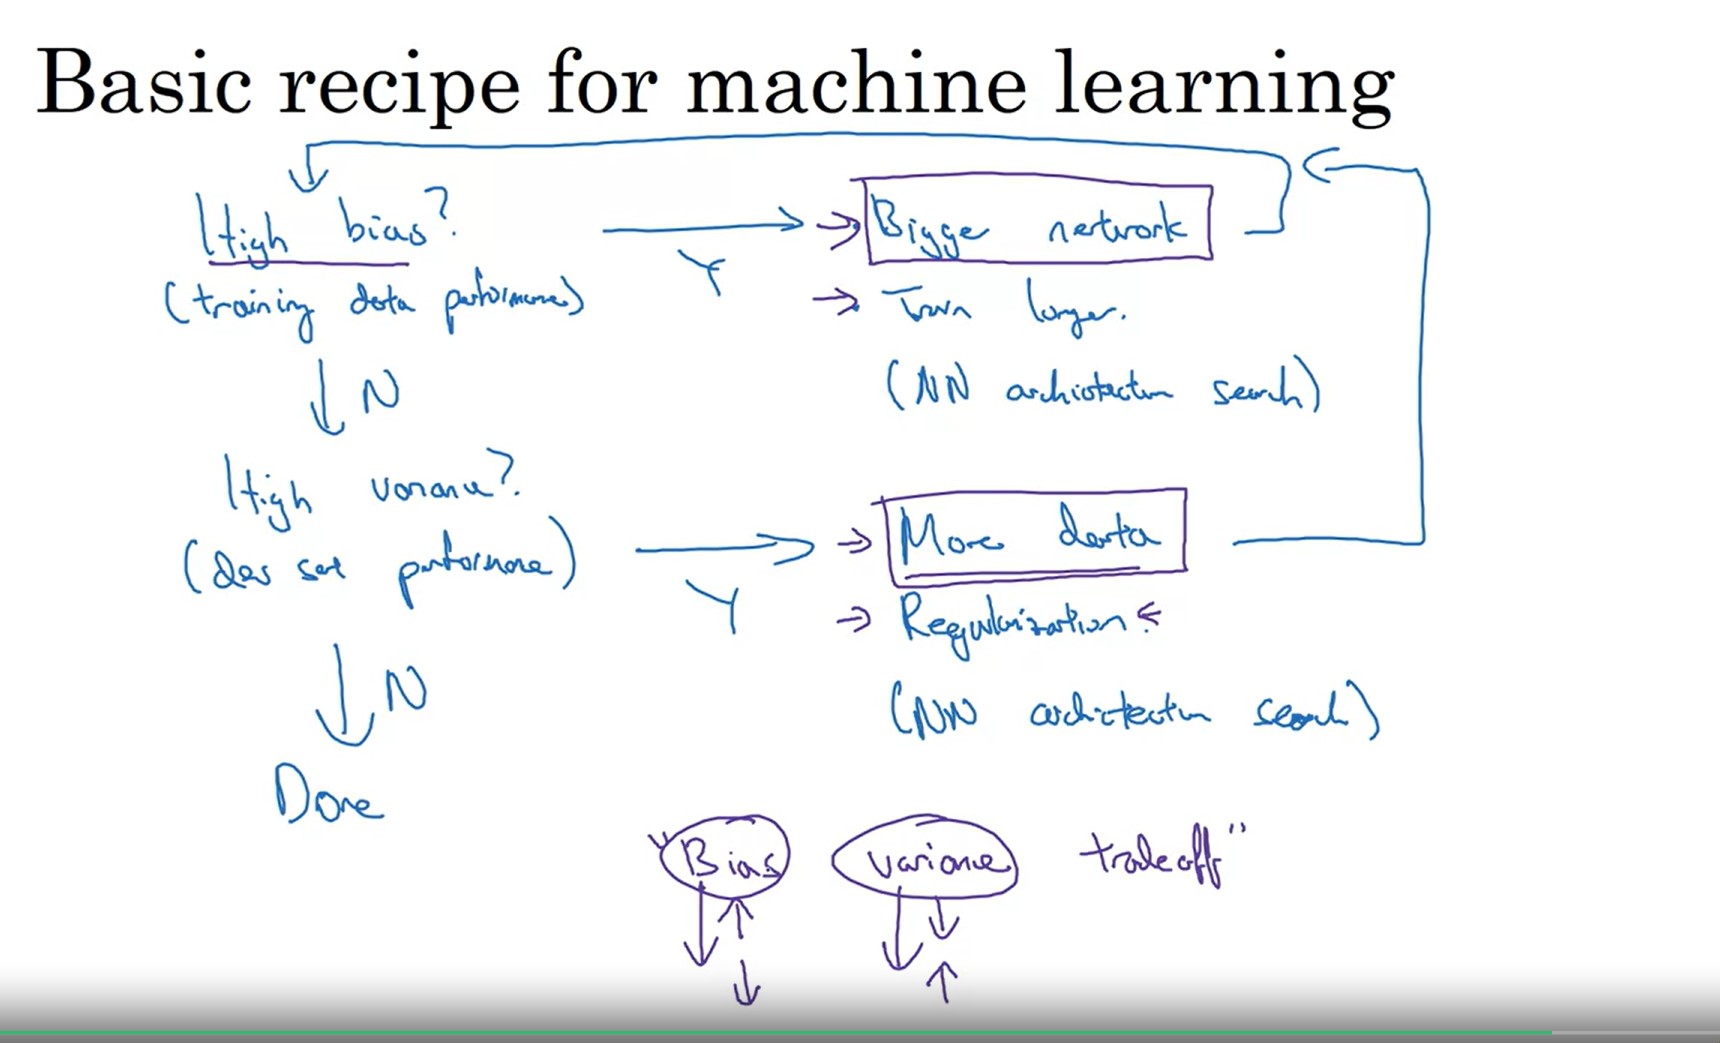 Basic recipe for machine learning
High bias?
(training data performance)
Y
Bigge network
Train longer.
(NN architecture search)
N
High variance?
(dev set performance)
Y
More data
Regularization
(NN architecture search)
N
Done
"Bias variance tradeoff"